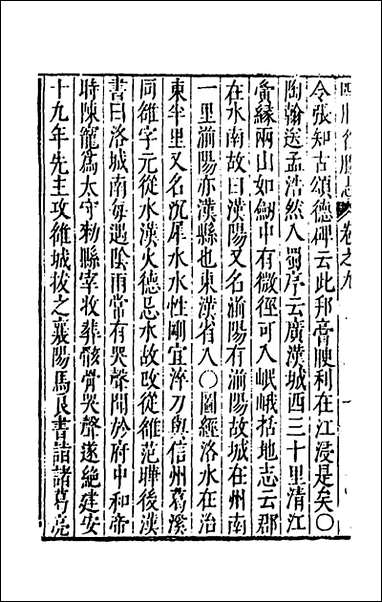 四川名勝志 卷之九
令張知古頌德碑云此邦膏腴利在江浸是矣〇
陶翰送孟浩然入蜀序云廣漢城西三十里清江
夤緣兩山如劍中有微徑可入岷峨括地志云郡
在水南故曰漢陽又名湔陽有湔陽故城在州南
一里湔陽亦漢縣也東漢省入〇圖經洛水在治
東半里又名沉犀水水性剛宜淬刀與信州葛溪
同雒字元從水漢火德忌水故改從雒范曄後漢
書曰洛城南每遇陰雨常有哭聲聞於府中和帝
時陳寵爲太守勑縣宰收葬骸骨哭聲遂絕建安
十九年先主攻雒城拔之襄陽馬良書詣諸葛亮